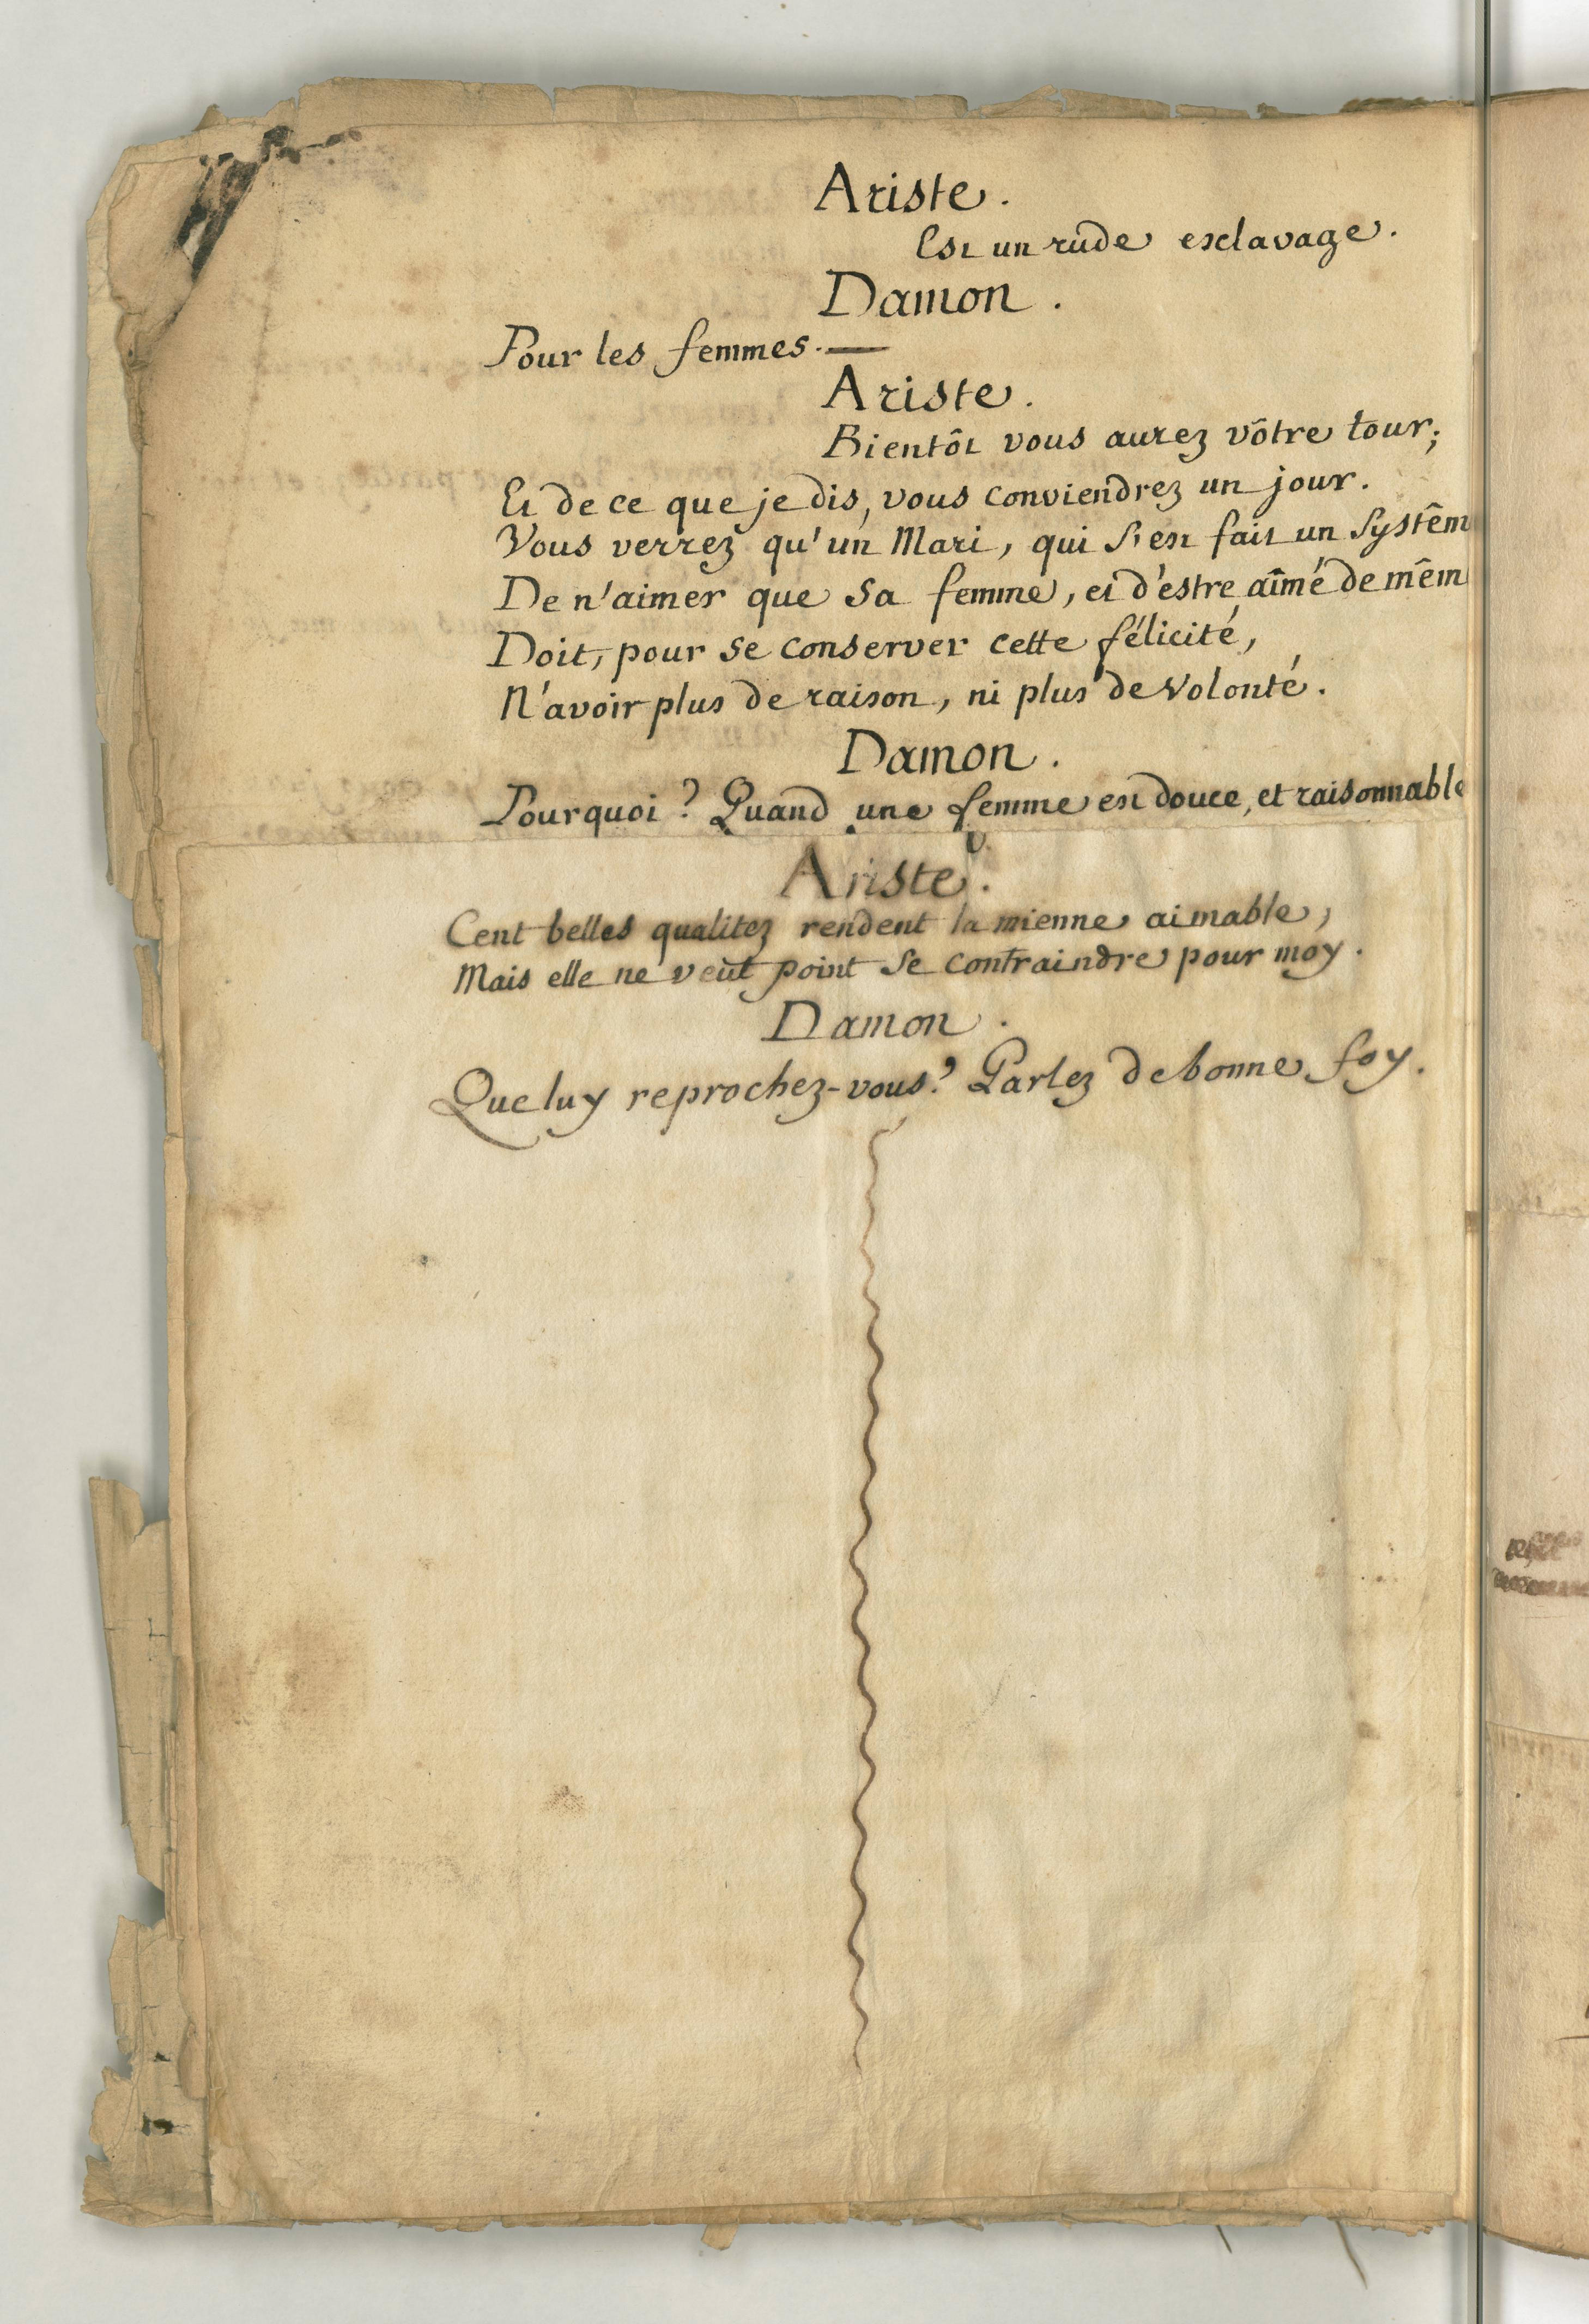 Ariste.
Est un rude esclavage.
Damon.
Pour les femmes. —
Ariste.
Bientôt vous aurez vôtre tour;
Et de ce que je dis, vous conviendrez un jour.
Vous verrez qu'un Mari, qui s'est fait un Systêm
De n'aimer que sa femme, et d'estre aimé de mêm
Doit, pour se conserver cette félicité,
N'avoir plus de raison, ni plus de volonté.
Damon.
Pourquoi? Quand une femme est douce, et raisonnable
Ariste.
Cent belles qualitez rendent la mienne aimable;
Mais elle ne veut point se contraindre pour moy.
Damon.
Que luy reprochez-vous? Parlez de bonne foy.